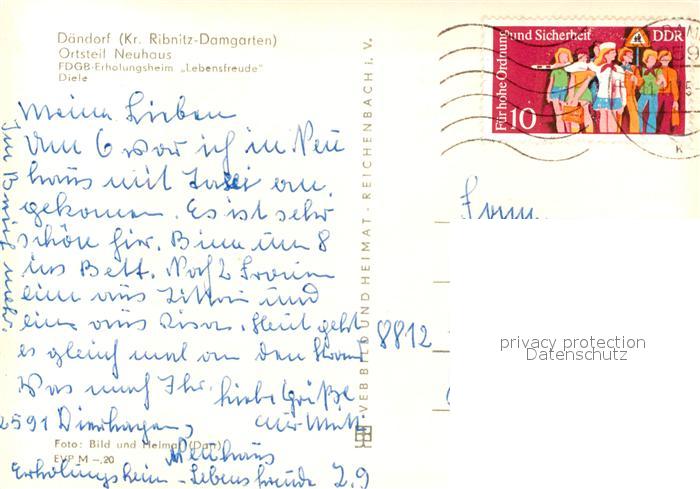 Dändorf (Kr. Ribnitz-Damgarten)
Ortsteil Neuhaus
FDGB-Erholungsheim „Lebensfreude"
Diele
Meine Lieben
Um 6 war ich in Neu
haus mit Taxi an.
gekommen. Es ist sehr
schön hir. Binn um 8
ins Bett. Noch 2 Frauen
eine aus Zittau und
eine aus Riesa. Heut geht
es gleich mal an den Strand
Was mach Ihr. liebe Grüße
eure Mutti
2591 Dierhagen,
Neuhaus
Erholungsheim Lebensfreude Z. 9
Im Brief mehr.
Foto: Bild und Heimat (Dan)
EVP M –,20
VEB BILD UND HEIMAT · REICHENBACH i. V.
Für hohe Ordnung und Sicherheit
DDR
10
Frau
8812
privacy protection
Datenschutz